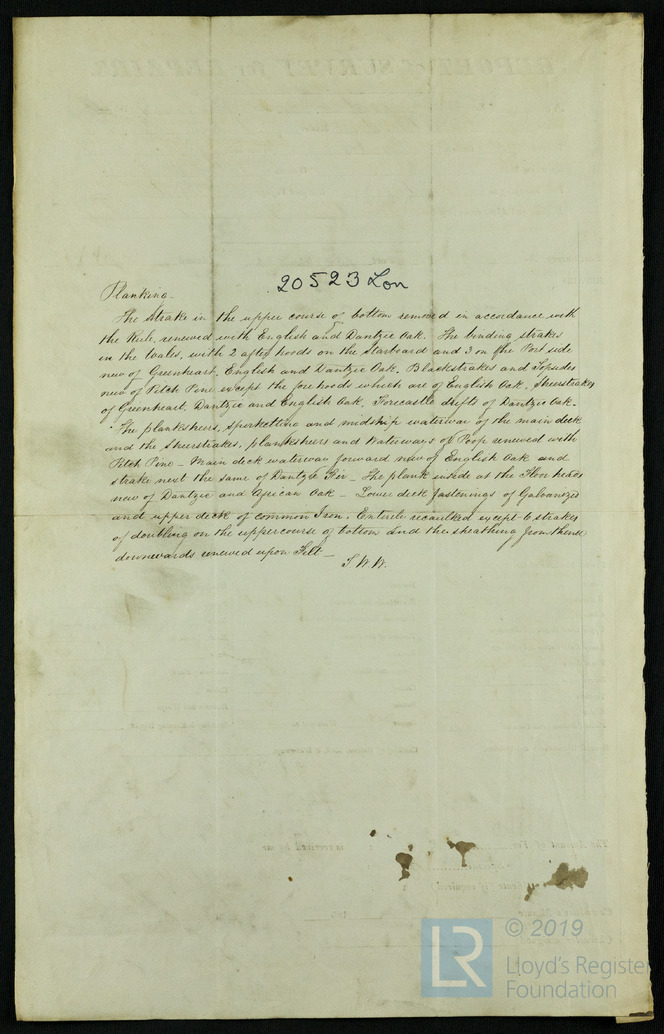 20523 Lon
Planking -
The Strake in the upper course of bottom removed in accordance with
the Rule, renewed with English and Dantzic Oak. The binding strakes
in the Wales, with 2 after hoods on the starboard and 3 on the Port side
new of Greenheart, English and Dantzic Oak. Blackstrakes and Topsides
new of Pitch Pine except the fore hoods which are of English Oak. Sheerstrakes
of Greenheart, Dantzic and English Oak. Forecastle drifts of Dantzic Oak -
The plansheers, Spirketting and midship waterway of the main deck
and the Sheerstrakes, plansheers and Waterways of Poop renewed with
Pitch Pine - Main deck waterway forward new of English Oak and
strake next the same of Dantzic Fir - The plank inside at the Floor heads
new of Dantzic and African Oak - Lower deck fastenings of Galvanized
and upper deck of common Iron. Entirely recaulked except 6 strakes
of doubling on the upper course of bottom and the sheathing from thence
downwards renewed upon Felt -
© 2019
Lloyd's Register
Foundation
LR